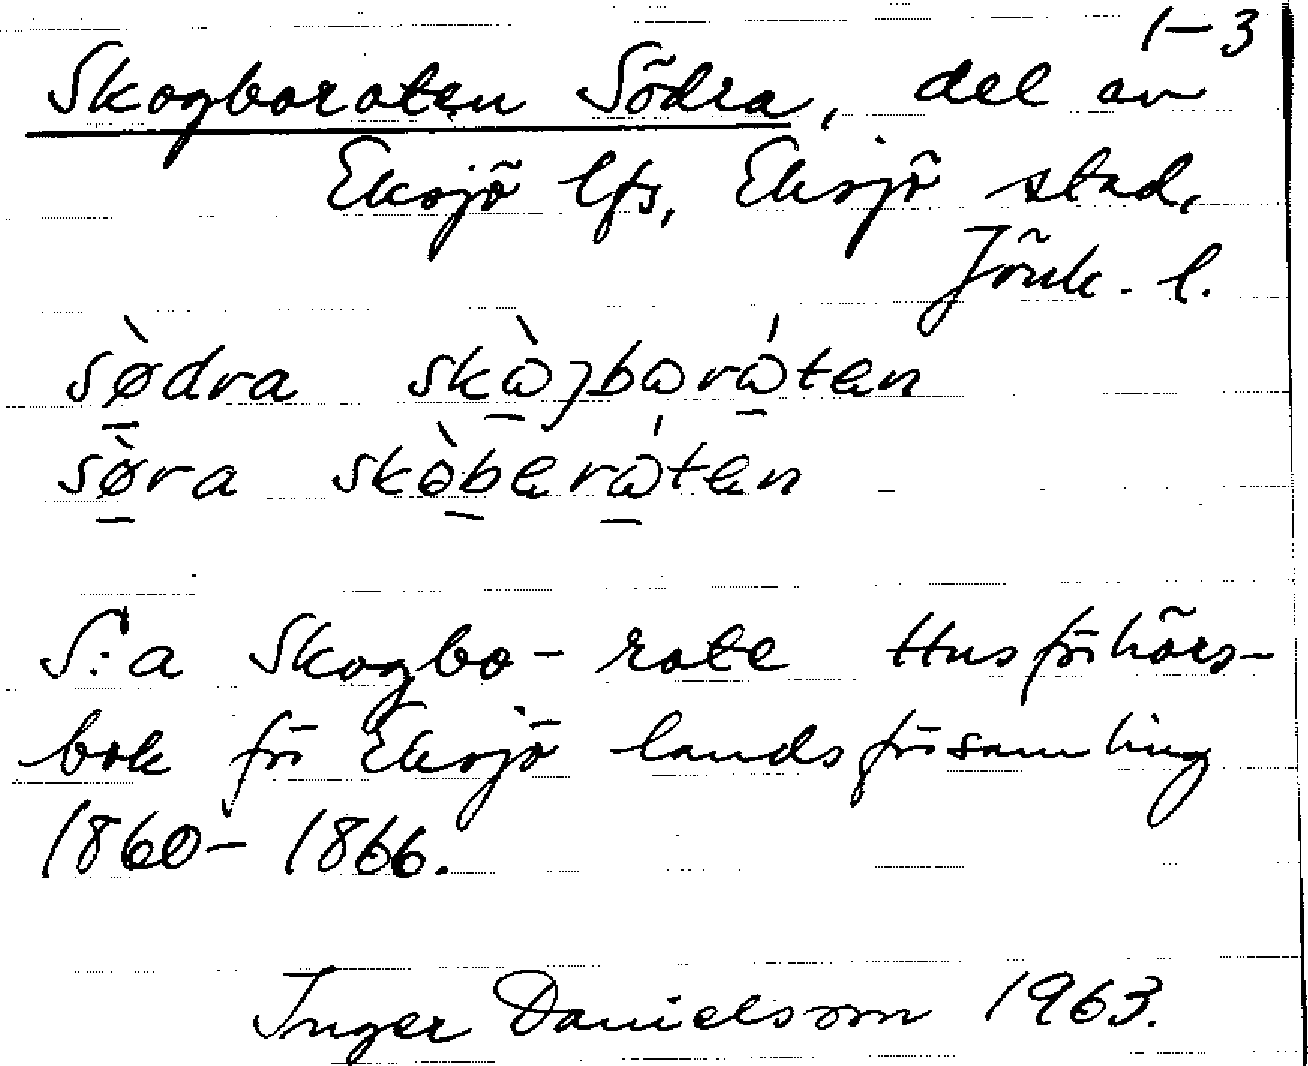 1-3
Skogboroten Södra, del av
Eksjö lfs, Eksjö stad,
Jönk. l.
sø̱̀dra skɷ̱̀ȷbɷrɷ̱́ten
sø̱̀ra skò̱berɷ̱́ten
S:a Skogbo-rote Husförhörs-
bok för Eksjö landsförsamling
1860-1866.
Inger Danielsson 1963.